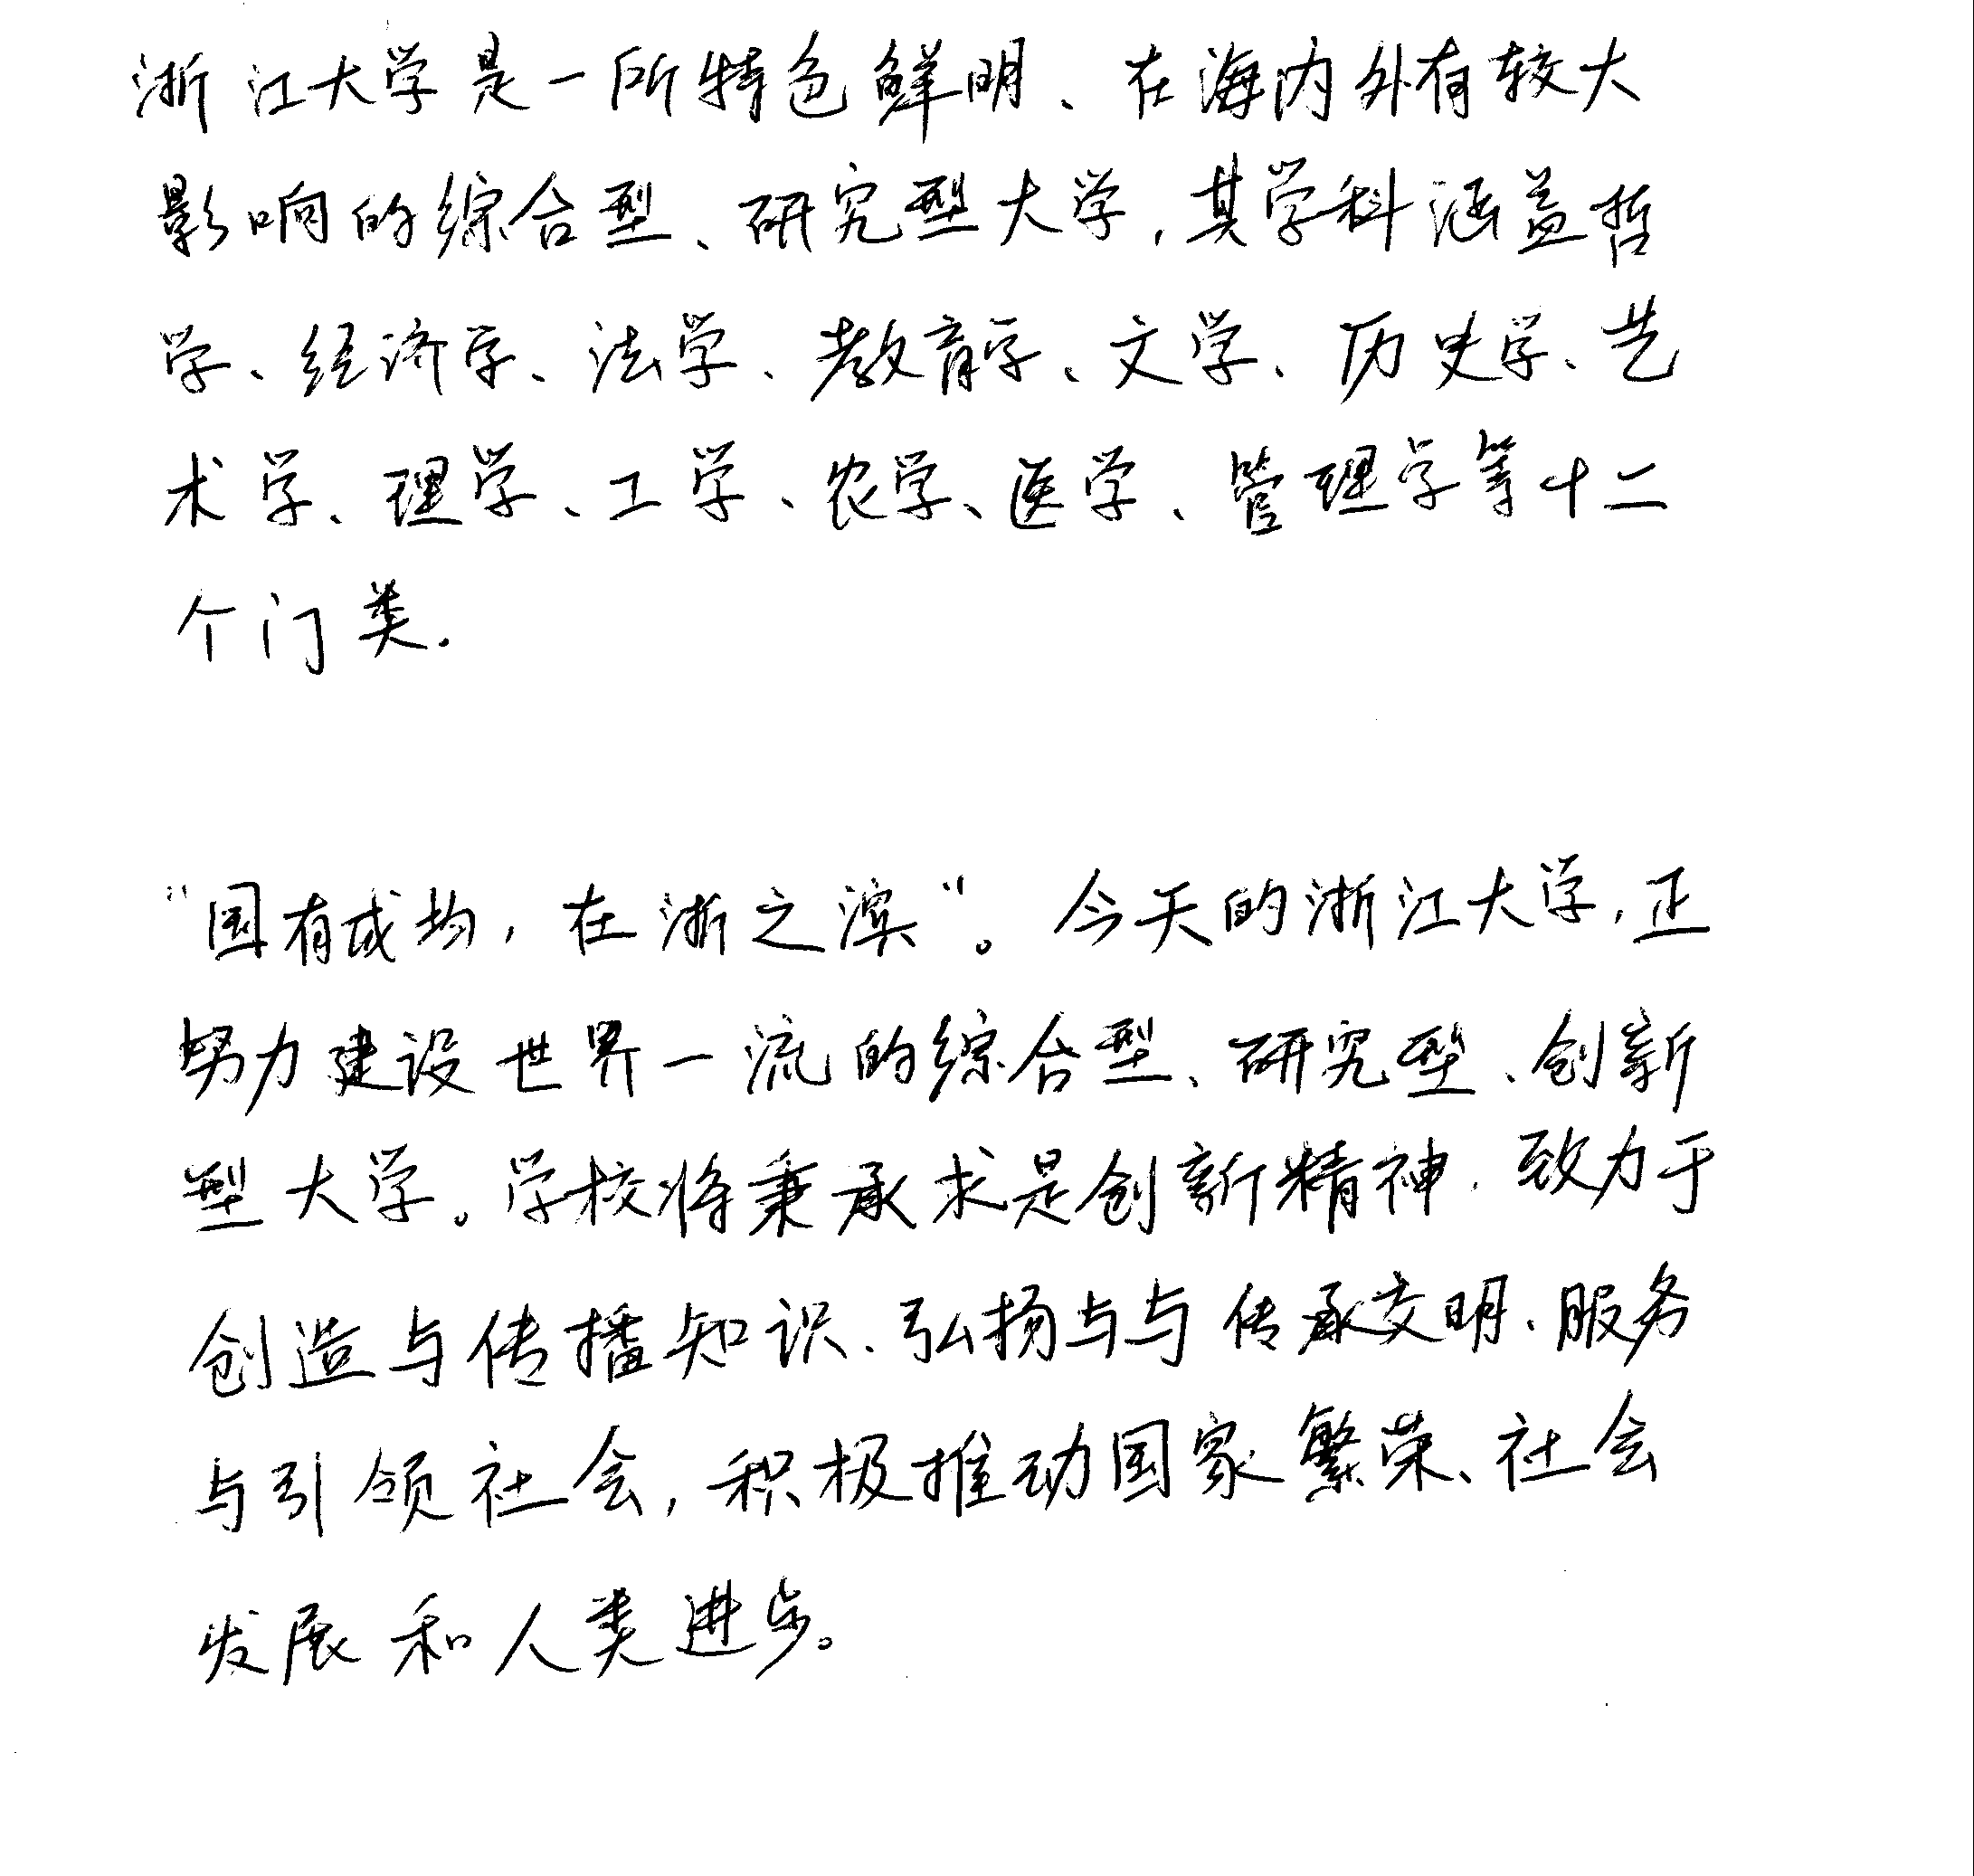 浙江大学是一所特色鲜明、在海内外有较大
影响的综合型、研究型大学,其学科涵盖哲
学、经济学、法学、教育学、文学、历史学、艺
术学、理学、工学、农学、医学、管理学等十二
个门类.
“国有成均,在浙之滨”。今天的浙江大学,正
努力建设世界一流的综合型、研究型、创新
型大学。学校将秉承求是创新精神,致力于
创造与传播知识、弘扬与与传承文明、服务
与引领社会,积极推动国家繁荣、社会
发展和人类进步。